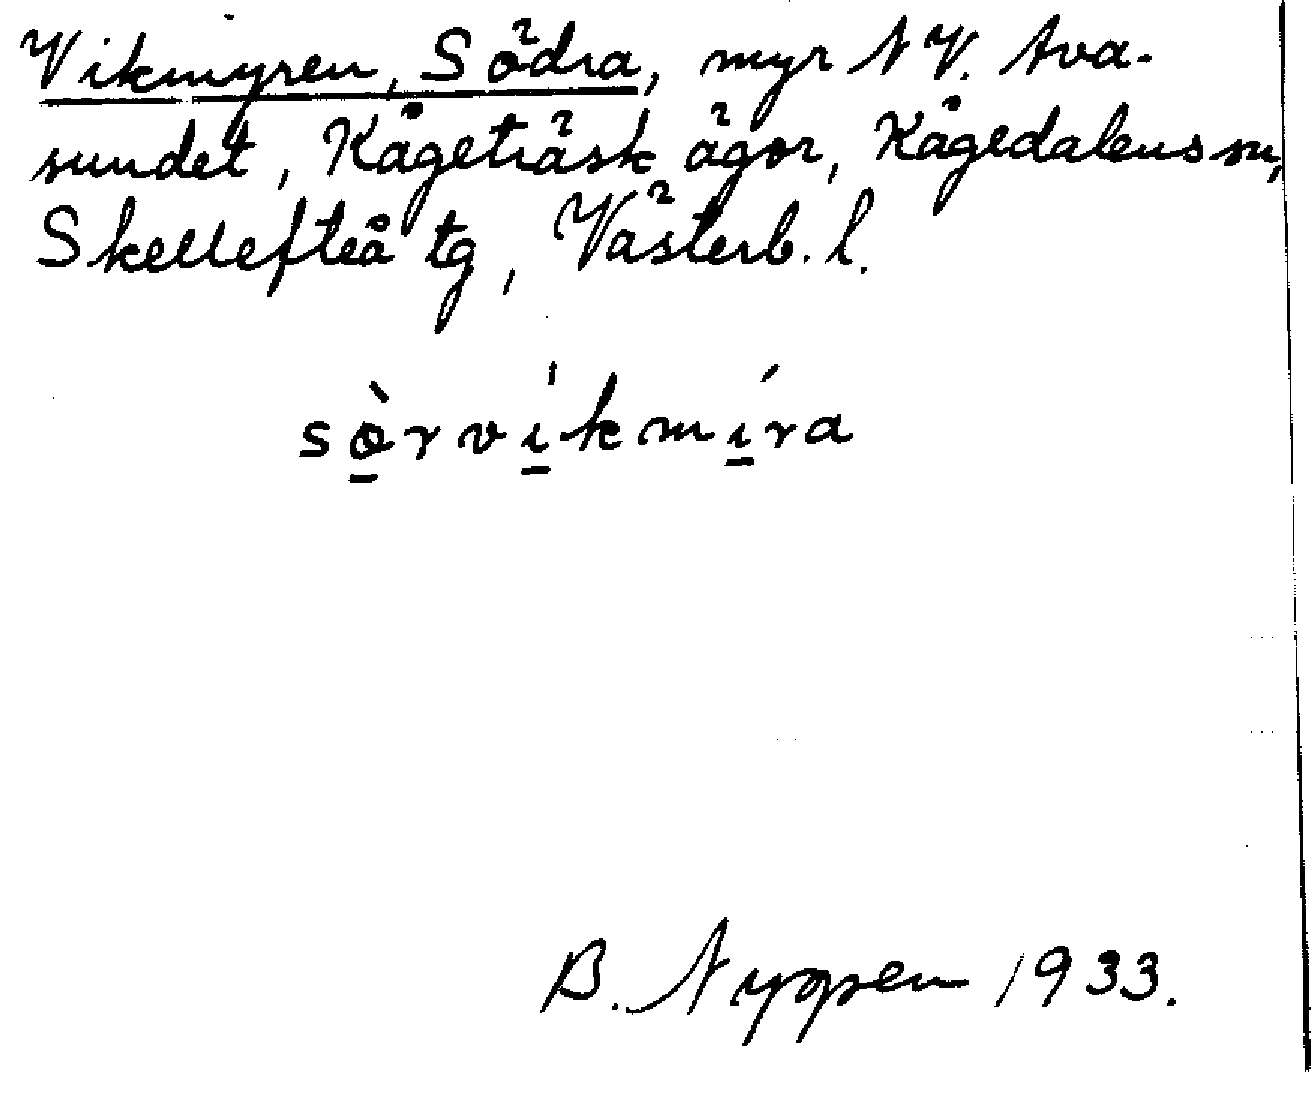 Vikmyren, Södra, myr NV. Ava-
sundet, Kågeträsk ägor, Kågedalens sn,
Skellefteå tg, Västerb. l.
sò̱rvi̱̍kmí̱ra
B. Nyppen 1933.